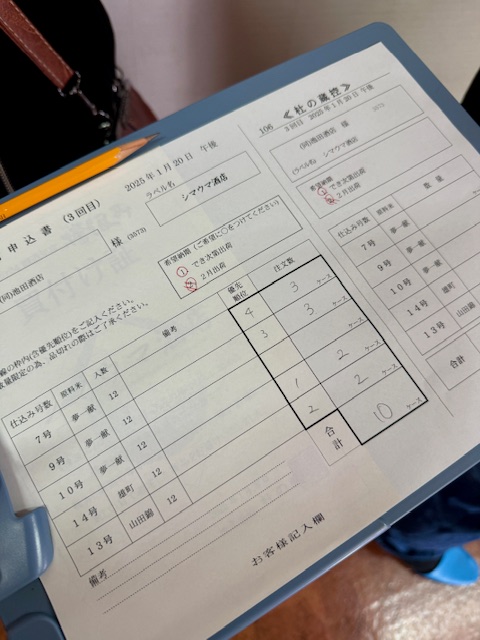 申込書 (3回目)
2025年1月20日 午後
ラベル名
シマウマ酒店
(同)池田酒店
様 (3573)
希望納期 (ご希望に○をつけてください)
1 でき次第出荷
2月出荷
線の枠内(含優先順位)をご記入ください。
数量限定の為、品切れの際はご了承ください。
仕込み号数 原料米 入数 備考 優先順位 注文数
7号 夢一献 12 4 3 ケース
9号 夢一献 12 3 3 ケース
10号 夢一献 12 2 ケース
14号 雄町 12 1 2 ケース
13号 山田錦 12 2
合計 10 ケース
備考
お客様記入欄
106 ≪杜の蔵控≫
3回目 2025年1月20日 午後
(同)池田酒店 様 3573
(ラベル名) シマウマ酒店
希望納期
1 でき次第出荷
2月出荷
仕込み号数 原料米 数量
7号 夢一献
9号 夢一献
10号 夢一献
14号 雄町
13号 山田錦
合計